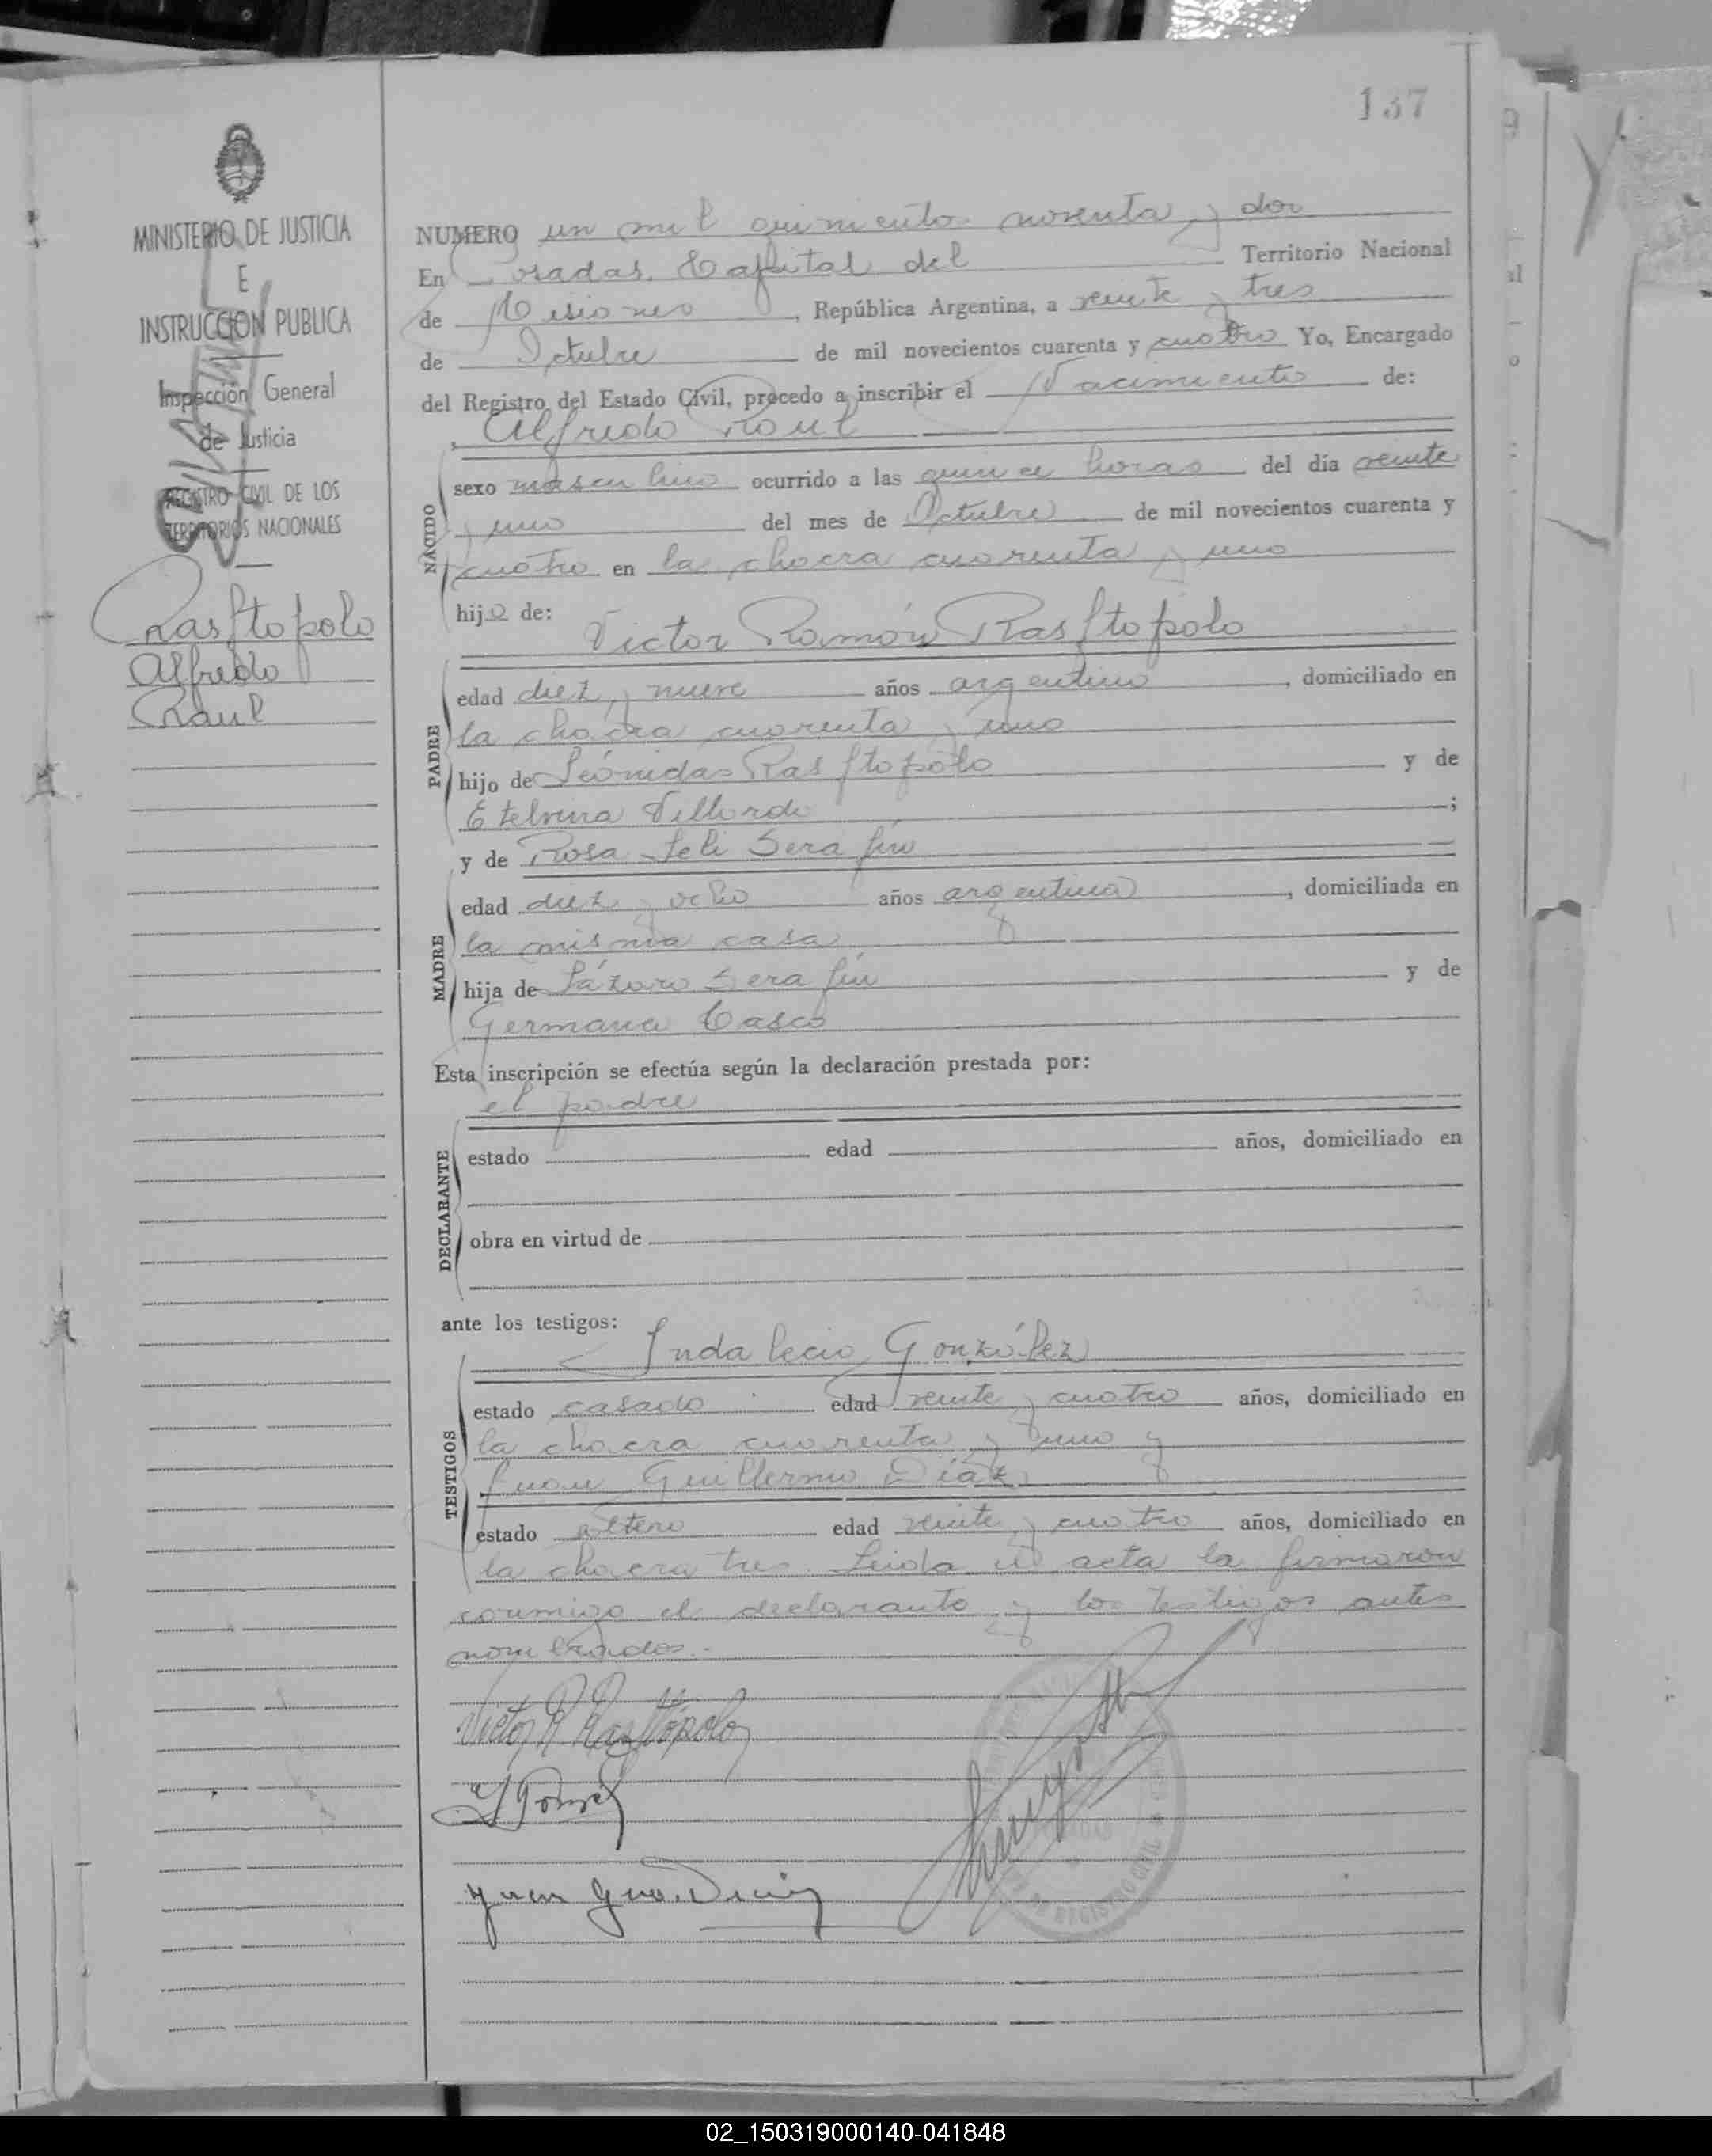 137
MINISTERIO DE JUSTICIA
E
INSTRUCCION PUBLICA
Inspección General
de Justicia
REGISTRO CIVIL DE LOS
TERRITORIOS NACIONALES
Rasftopolo
Alfredo
Raul
NUMERO un mil quinientos noventa y dos
En Posadas, Capital del Territorio Nacional
de Misiones, República Argentina, a veinte y tres
de Octubre de mil novecientos cuarenta y cuatro Yo, Encargado
del Registro del Estado Civil, procedo a inscribir el Nacimiento de:
Alfredo Raul
NACIDO
sexo masculino ocurrido a las quince horas del día veinte
y uno del mes de Octubre de mil novecientos cuarenta y
cuatro en la chacra cuarenta y uno
hijo de:
Victor Ramón Rasftopolo
PADRE
edad diez y nueve años argentino, domiciliado en
la chacra cuarenta y uno
hijo de Leónidas Rasftopolo y de
Etelvina Villorde;
y de Rosa Seli Serafín
MADRE
edad diez y ocho años argentina, domiciliada en
la misma casa
hija de Lázaro Serafín y de
Germana Casco
Esta inscripción se efectúa según la declaración prestada por:
el padre
DECLARANTE
estado edad años, domiciliado en
obra en virtud de
ante los testigos:
Indalecio González
TESTIGOS
estado casado edad veinte y cuatro años, domiciliado en
la chacra cuarenta y uno y
Juan Guillermo Díaz
estado soltero edad veinte y cuatro años, domiciliado en
la chacra tres. Leida el acta la firmaron
conmigo el declarante y los testigos antes
nombrados.-
Victor R. Rasftópolo
Juan Gmo. Diaz
REGISTRO CIVIL
02_150319000140-041848